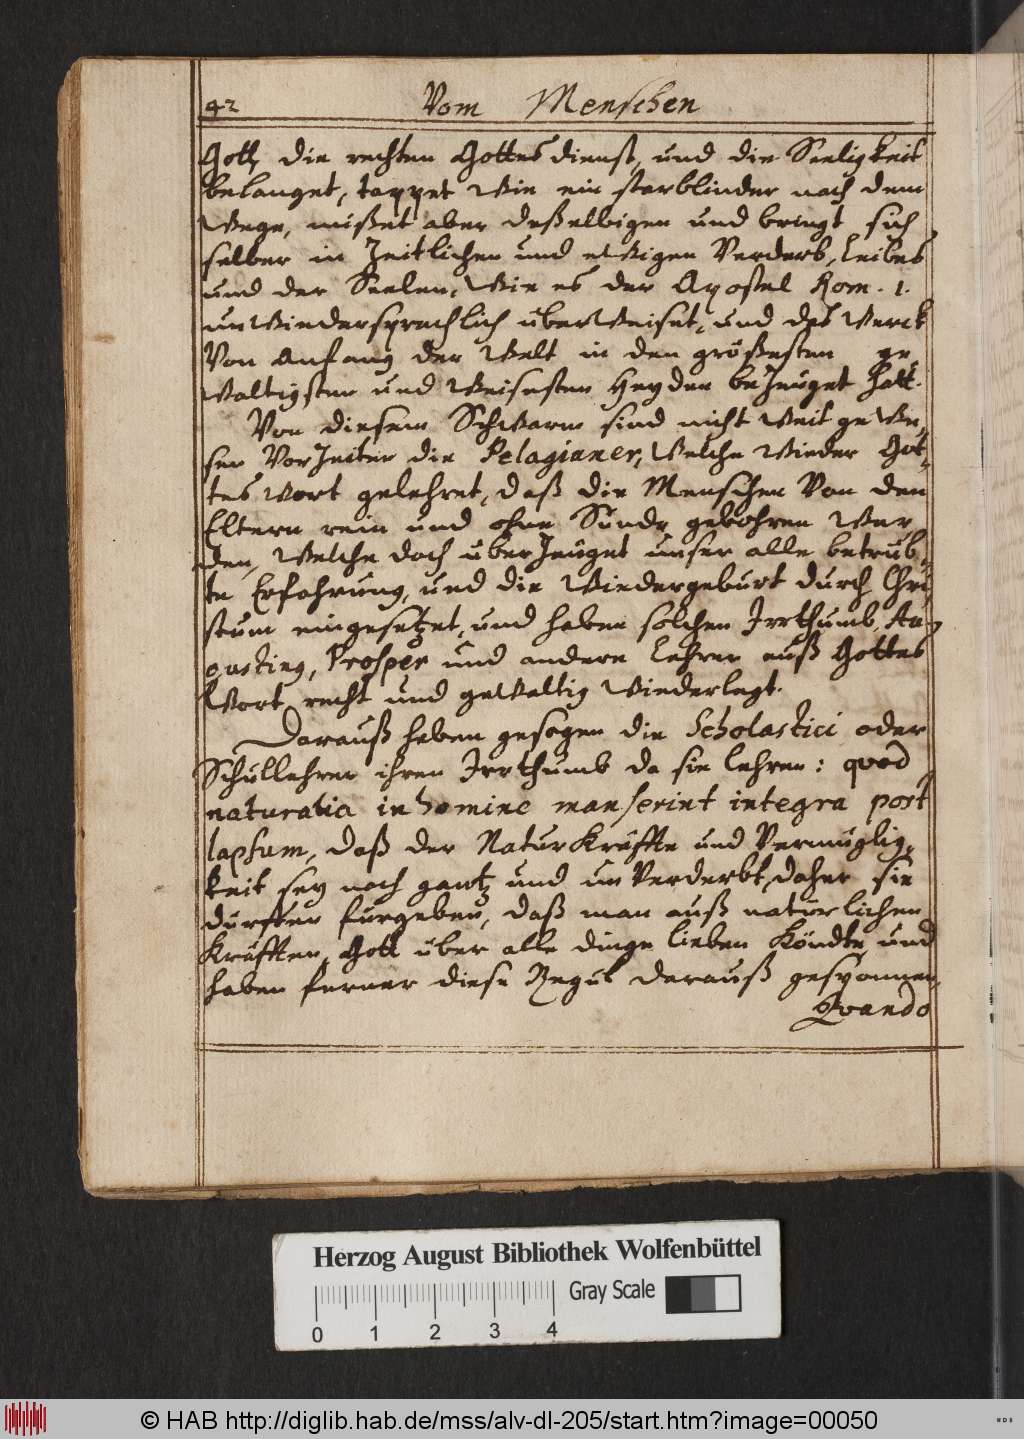 42 Vom Menschen
Gott, die rechten Gottesdienst, und die Seeligkeit
belanget, tappet wie ein starblinder nach dem
Wege, mißet aber deßelbigen und bringt sich
selber in Zeitlichen und ewigen Verderb, Leibes
und der Seelen, Wie es der Apostel Rom. 1.
unwiedersprachlich überweiset, und das Werck
Von Anfang der Welt in den größesten ge,
waltigsten und Weisesten Heyden bezeuget hatt.
Von diesem Schwarm sind nicht weit gewe,
sen Vorzeiten die Pelagianer, welche wieder Got,
tes wort gelehret, daß die Menschen Von den
Eltern rein und ohne Sünde gebohren wer,
den, welche doch überzeuget unser alle betrüb,
te Erfahrung, und die Wiedergeburt durch Chri
stum eingesetzet, und haben solchen Irrthumb, Au,
gusting, Prosper und andere Lehrer auß Gottes
Wort recht und gewaltig wiederlegt.
Darauß haben gesogen die Scholastici oder
Schullehrer ihren Irrthumb da sie lehren: quod
naturalia in homine manserint integra post
lapsum, daß der Natur Kräffte und Vermüglig,
keit sey noch gantz und unverderbt, daher sie
durfften fürgeben, daß man auß natürlichen
Kräfften, Gott über alle dinge lieben köndte, und
haben ferner diese Regul darauß gesponnen,
Qvando
Herzog August Bibliothek Wolfenbüttel
Gray Scale
0 1 2 3 4
© HAB http://diglib.hab.de/mss/alv-dl-205/start.htm?image=00050